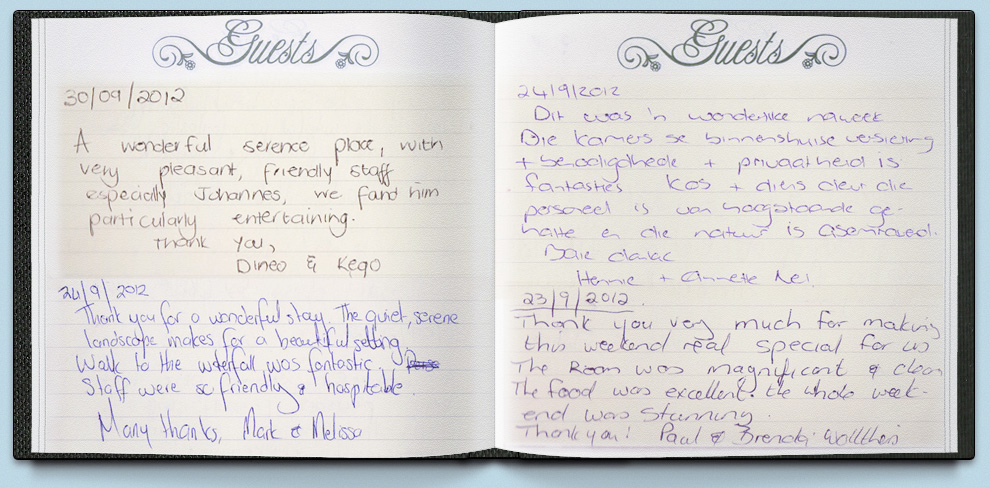 Guests
30/09/2012
A wonderful serence place, with
very pleasant, friendly staff
especially Johannes, we fand him
particularly entertaining.
Thank you,
Dineo & Kego
24/9/2012
Thank you for a wonderful stay. The quiet, serene
landscape makes for a beautiful setting.
Walk to the waterfall was fantastic.
Staff were so friendly & hospitable.
Many thanks, Mark & Melissa
Guests
24/9/2012
Dit was 'n wonderlike naweek
Die kamers se binnenshuise versiering
+ benodigdhede + privaatheid is
fantasties Kos + diens deur die
personeel is van hoogstaande ge-
halte en die natuur is asemrowend.
Baie dankie
Hennie + Annette Nel.
23/9/2012.
Thank you very much for making
this weekend real special for us
The Room was magnificant & clean
The food was excellent. the whole week-
end was stunning.
Thank you! Paul & Brenda